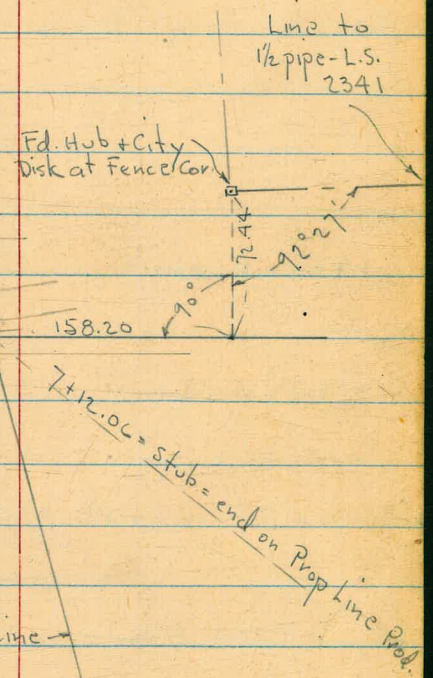 Line to
1½ pipe - L.S.
2341
Fd. Hub + City
Disk at Fence Cor.
72.44
92° 27'
90°
158.20
7+12.06 = stub = end on Prop Line Prod.
ine